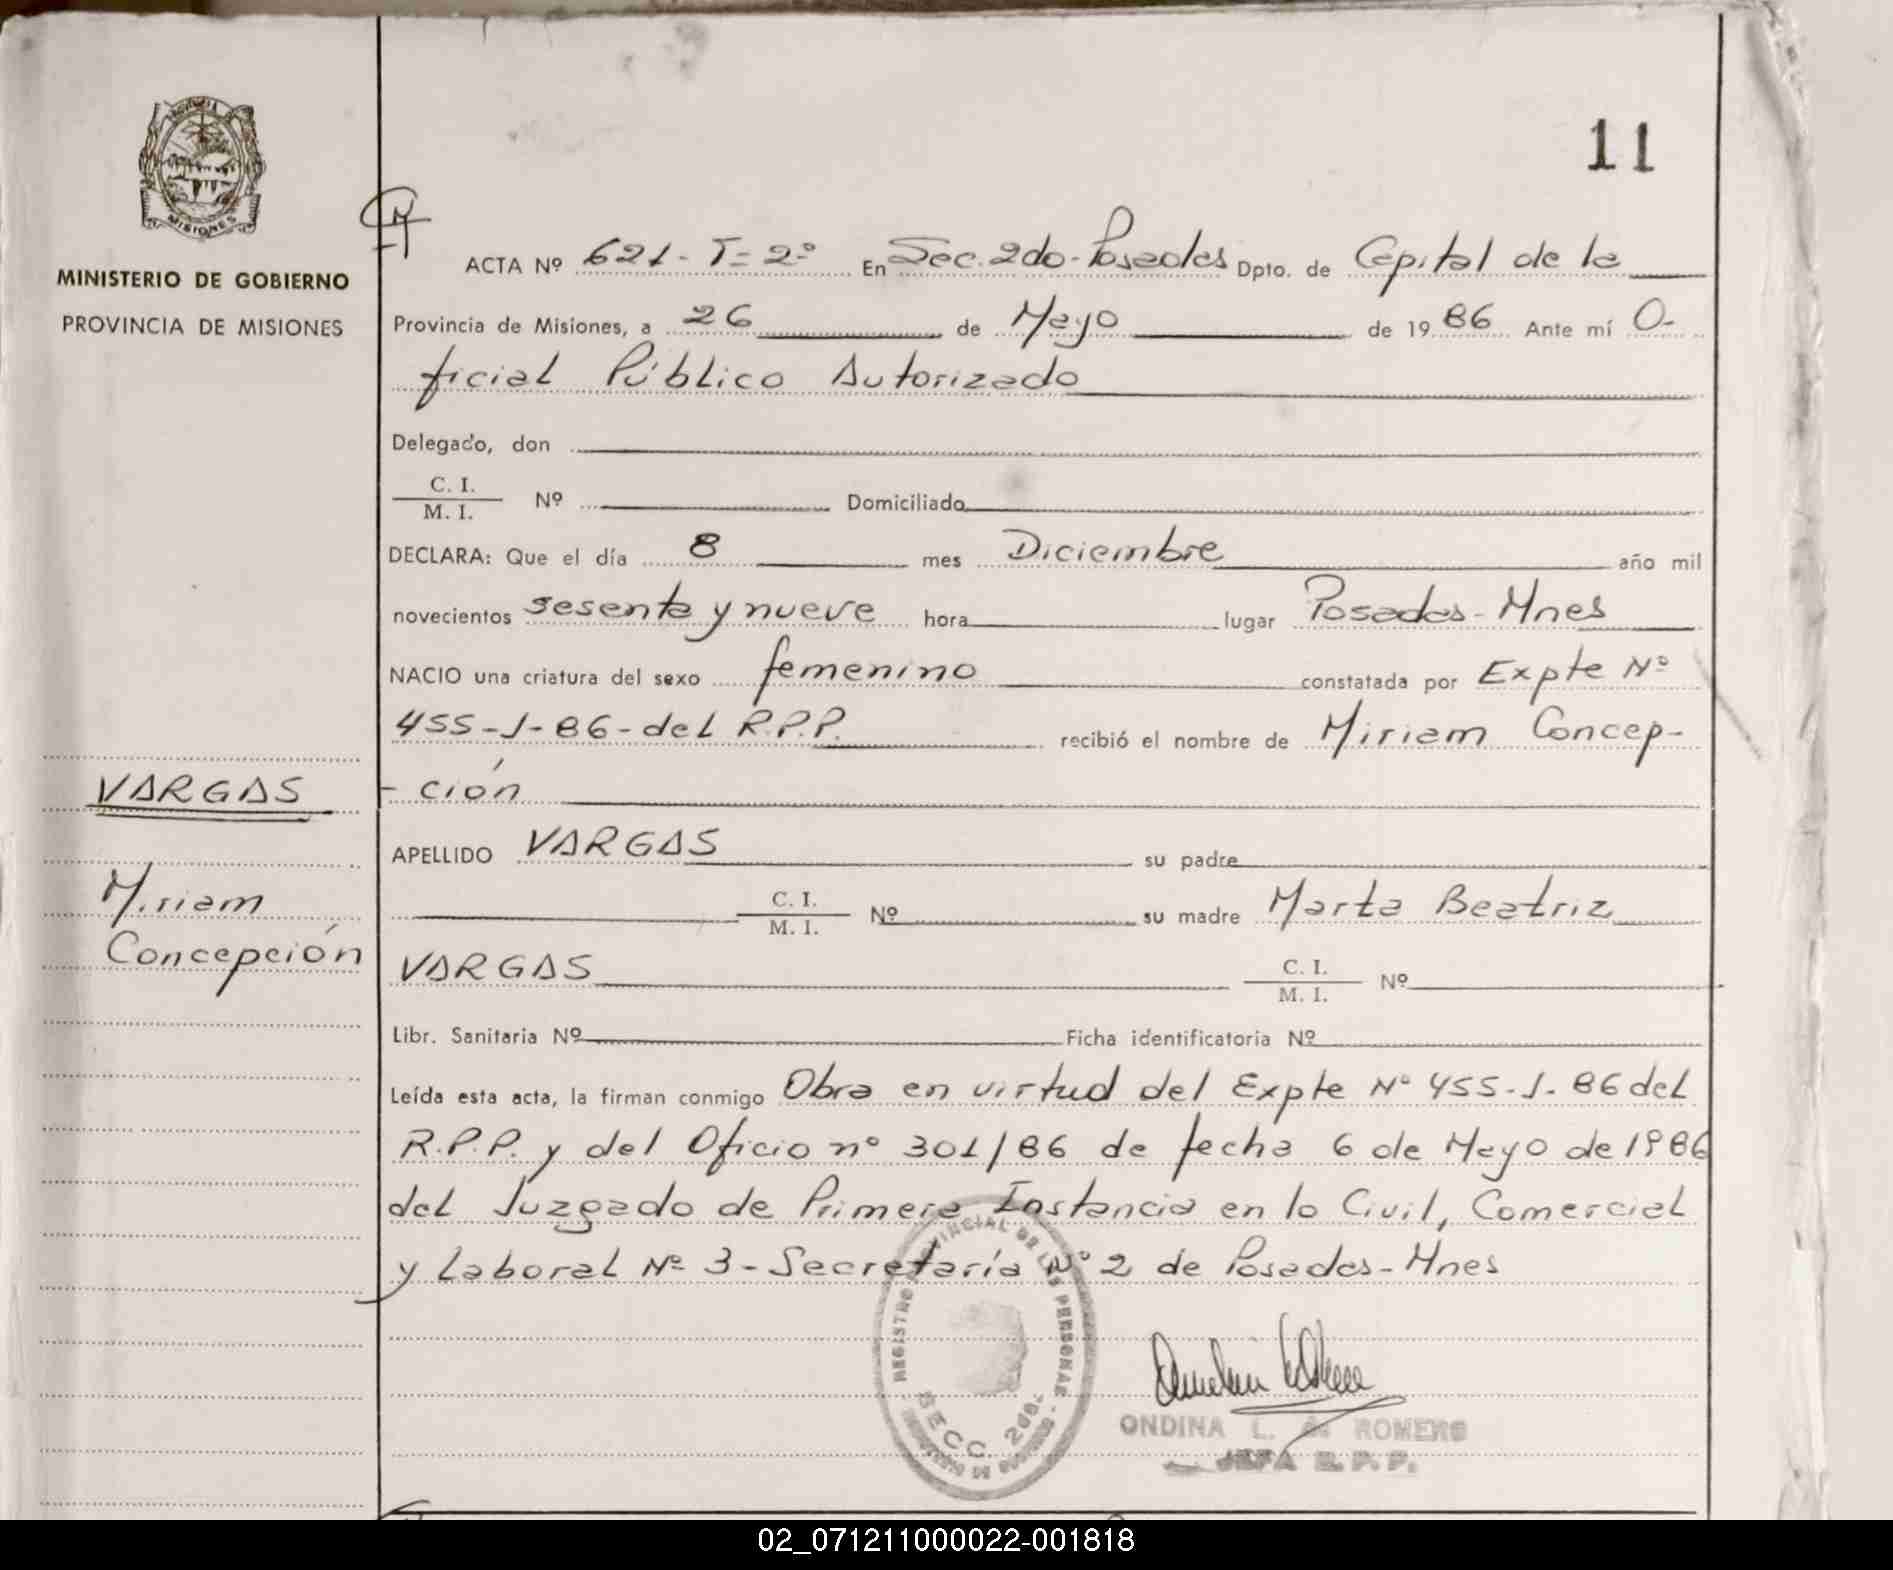 11
MISIONES
MINISTERIO DE GOBIERNO
PROVINCIA DE MISIONES
ACTA Nº 621 - T = 2º En Sec. 2do - Posadas Dpto. de Capital de la
Provincia de Misiones, a 26 de Mayo de 1986 Ante mí O-
ficial Público Autorizado
Delegado, don
C. I.
M. I. Nº Domiciliado
DECLARA: Que el día 8 mes Diciembre año mil
novecientos sesenta y nueve hora lugar Posadas - Mnes
NACIO una criatura del sexo femenino constatada por Expte Nº
455-J-86-del R.P.P. recibió el nombre de Miriam Concep-
- ción
VARGAS
APELLIDO VARGAS su padre
Miriam
C. I.
M. I. Nº su madre Marta Beatriz
Concepción
VARGAS C. I.
M. I. Nº
Libr. Sanitaria Nº Ficha identificatoria Nº
Leída esta acta, la firman conmigo Obra en virtud del Expte Nº 455-J-86 del
R.P.P. y del Oficio nº 301/86 de fecha 6 de Mayo de 1986
del Juzgado de Primera Instancia en lo Civil, Comercial
y Laboral Nº 3 - Secretaría Nº 2 de Posadas - Mnes
REGISTRO PROVINCIAL DE LAS PERSONAS
SECC. 2da.
MINISTERIO DE GOBIERNO
ONDINA L. ROMERO
JEFA R. P. P.
02_071211000022-001818